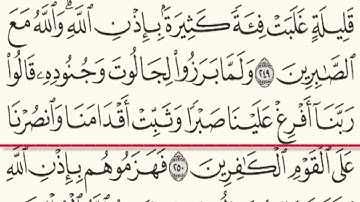 قَلِيلَةٍ غَلَبَتْ فِئَةً كَثِيرَةً بِإِذْنِ ٱللَّهِ ۗ وَٱللَّهُ مَعَ
ٱلصَّٰبِرِينَ ٢٤٩ وَلَمَّا بَرَزُوا۟ لِجَالُوتَ وَجُنُودِهِۦ قَالُوا۟
رَبَّنَآ أَفْرِغْ عَلَيْنَا صَبْرًا وَثَبِّتْ أَقْدَامَنَا وَٱنصُرْنَا
عَلَى ٱلْقَوْمِ ٱلْكَٰفِرِينَ ٢٥٠ فَهَزَمُوهُم بِإِذْنِ ٱللَّهِ